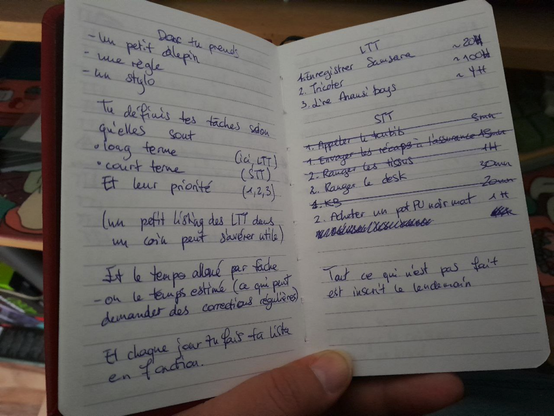 Donc tu prends
- un petit calepin
- une règle
- un stylo
Tu définis tes tâches selon
qu'elles sont
• long terme (ici, LTT)
• court terme (STT)
Et leur priorité (1,2,3)
(un petit listing des LTT dans
un coin peut s'avérer utile)
Et le temps alloué par tâche
- ou le temps estimé (ce qui peut
demander des corrections régulières)
Et chaque jour tu fais ta liste
en fonction.
LTT
1. Enregistrer Samsara ~20H
2. Tricoter ~100H
3. Lire Anansi boys ~4H
STT
1. Appeler le toubib 5mn
1. Envoyer les récaps à l'assurance 15mn
2. Ranger les tissus 1H
2. Ranger le desk 30mn
20mn
2. Acheter un pot PU noir mat 1H
Tout ce qui n'est pas fait
est inscrit le lendemain